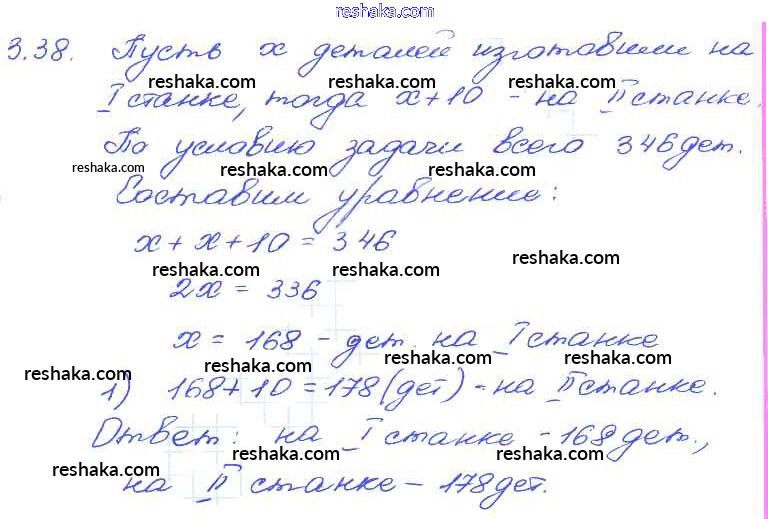 reshaka.com
3.38. Пусть x деталей изготовили на
reshaka.com reshaka.com reshaka.com
I станке, тогда x+10 - на II станке.
По условию задачи всего 346 дет.
reshaka.com reshaka.com reshaka.com
Составим уравнение:
x + x + 10 = 346
reshaka.com reshaka.com reshaka.com
2x = 336
x = 168 - дет. на I станке
reshaka.com reshaka.com reshaka.com
1) 168+10=178(дет) - на II станке.
Ответ: на I станке - 168 дет.,
reshaka.com reshaka.com reshaka.com
на II станке - 178 дет.